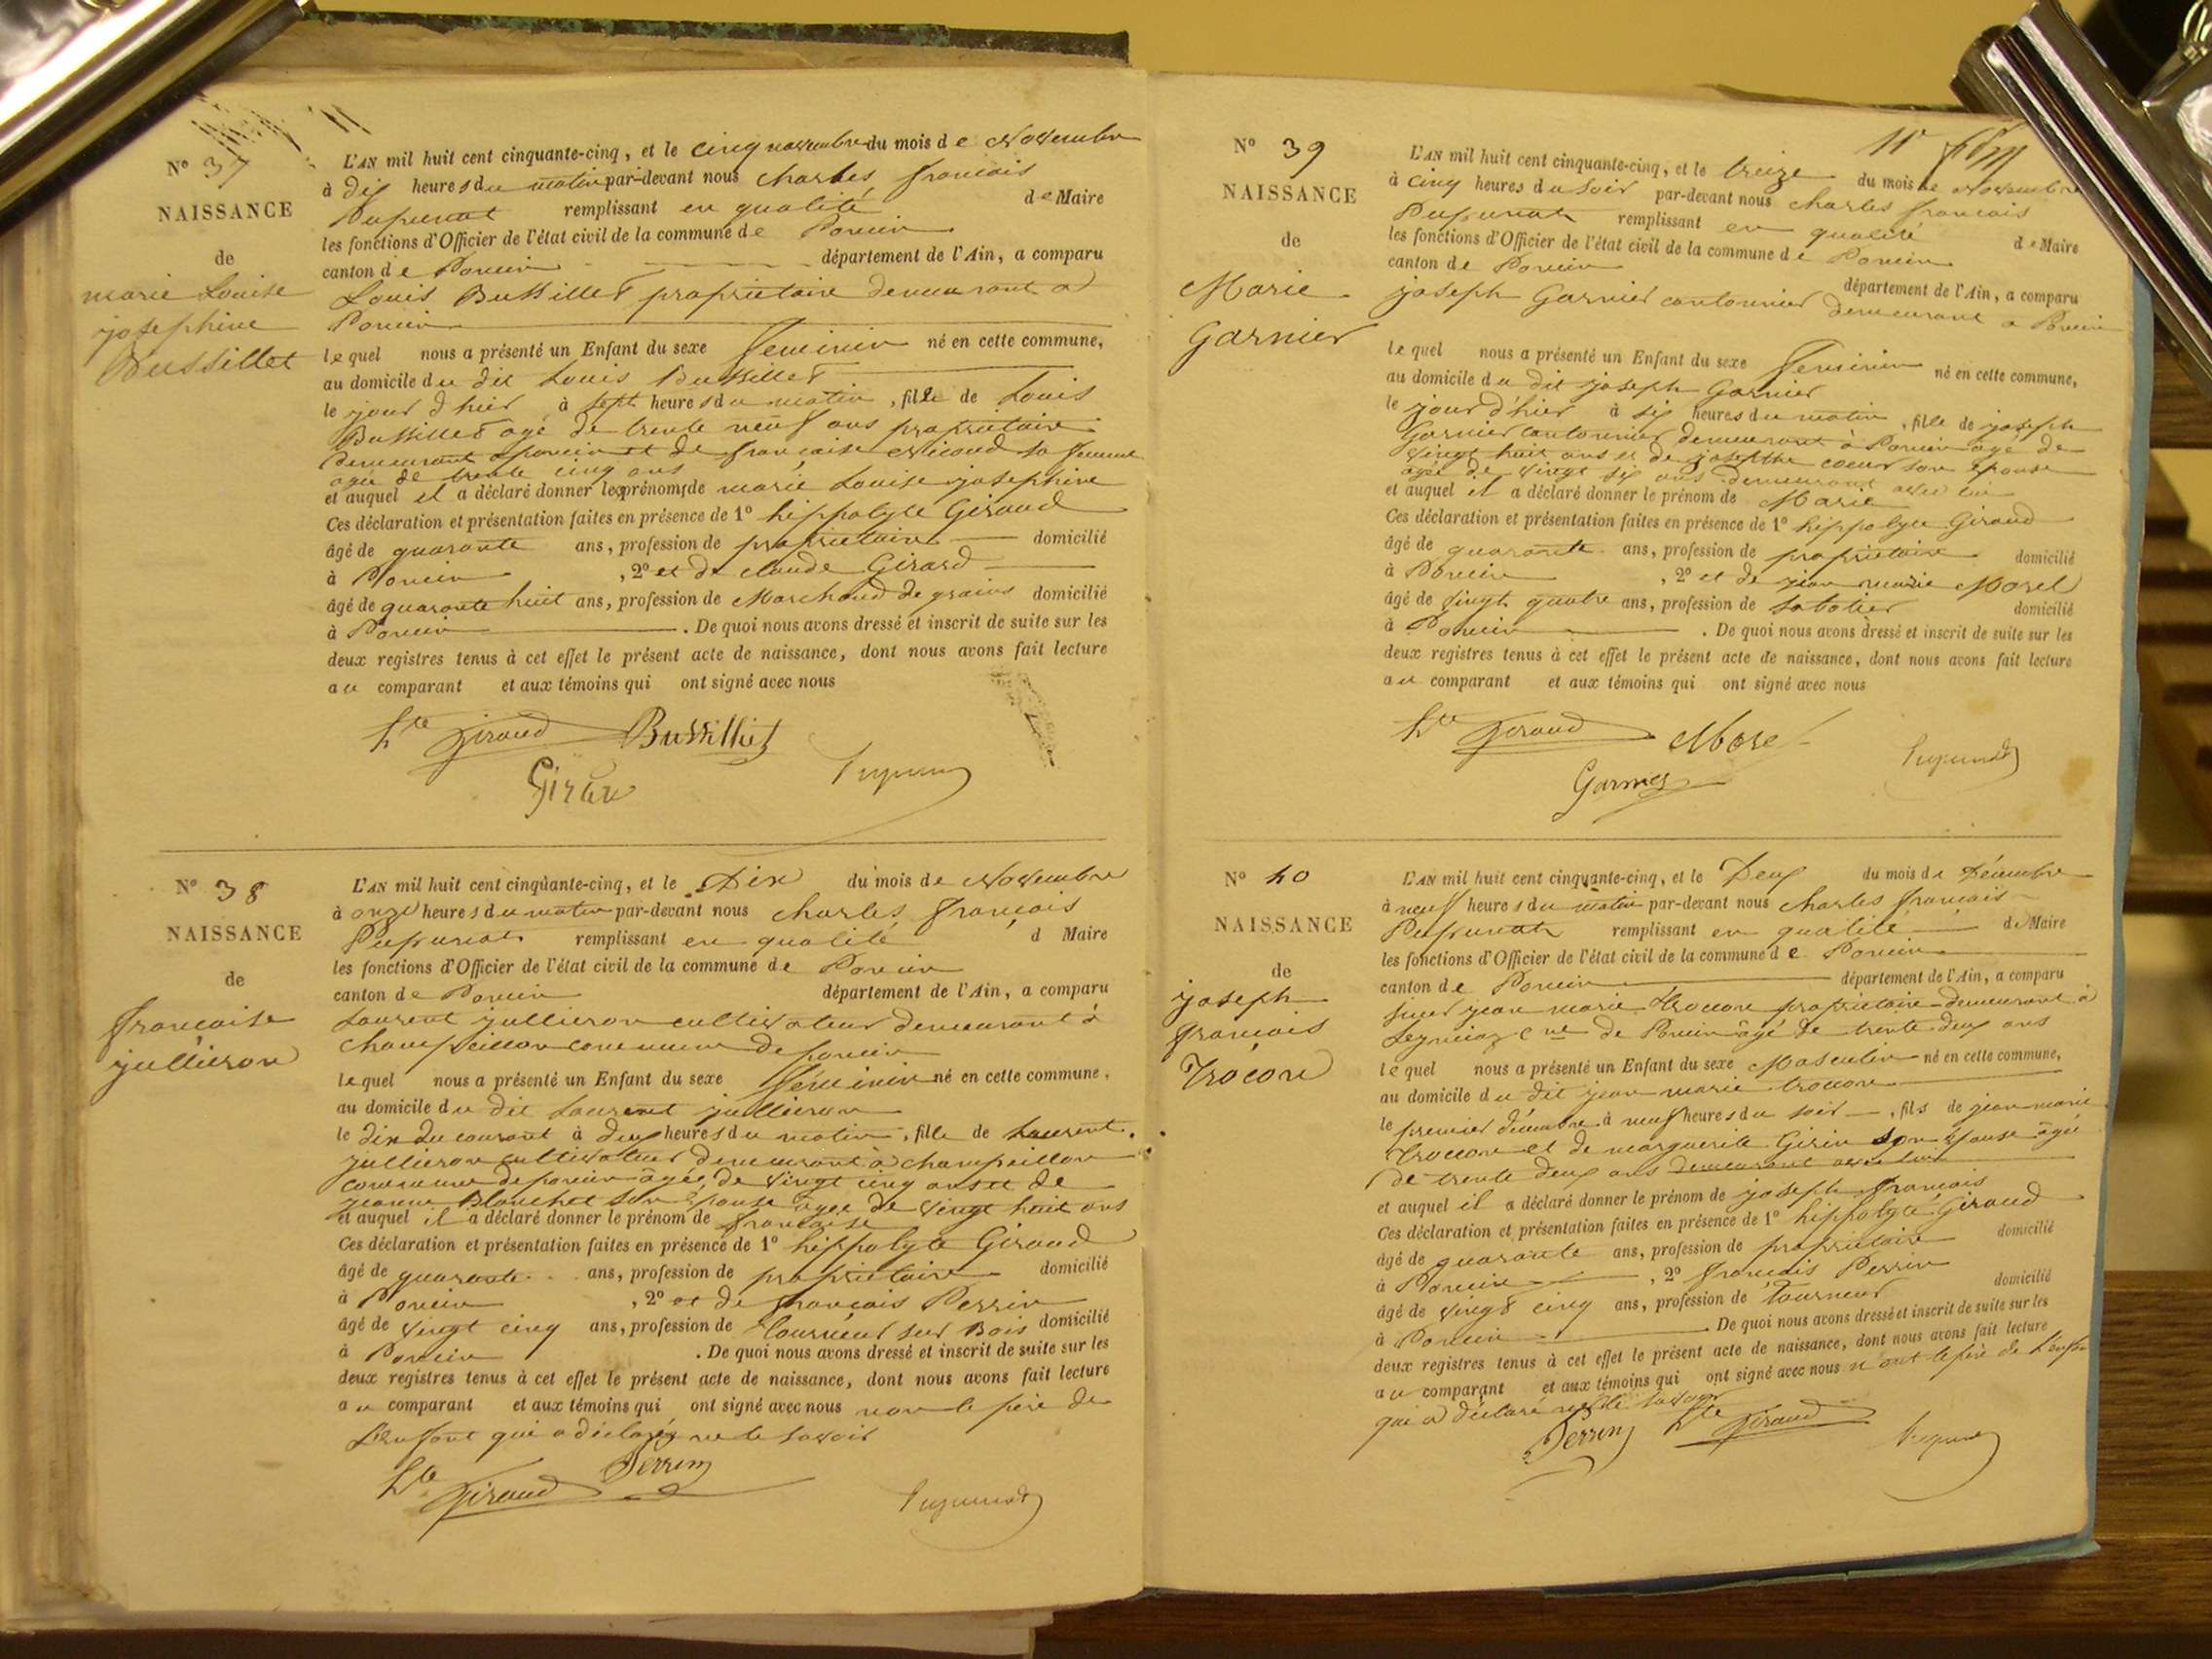 N° 37
NAISSANCE
de
marie Louise
josephine
Bussillet
L'AN mil huit cent cinquante-cinq, et le cinq novembre du mois de Novembre
à dix heures du matin par-devant nous charles françois
remplissant en qualité de Maire
les fonctions d'Officier de l'état civil de la commune de Poncin
canton de Poncin département de l'Ain, a comparu
Louis Bussillet propriétaire demeurant a
Poncin
lequel nous a présenté un Enfant du sexe feminin né en cette commune,
au domicile du dit Louis Bussillet
le jour d'hier à sept heures du matin, fille de Louis
Bussillet agé de trente neuf ans propriétaire
demeurant à poncin et de françoise Nicoud sa femme
agée de trente cinq ans
et auquel il a déclaré donner les prénoms de marie Louise josephine
Ces déclaration et présentation faites en présence de 1° hippolyte Giraud
âgé de quarante ans, profession de propriétaire domicilié
à Poncin, 2° et de claude Girard
âgé de quarante huit ans, profession de Marchand de grains domicilié
à Poncin. De quoi nous avons dressé et inscrit de suite sur les
deux registres tenus à cet effet le présent acte de naissance, dont nous avons fait lecture
au comparant et aux témoins qui ont signé avec nous
hte Giraud Bussillet
N° 38
NAISSANCE
de
françoise
jullieron
L'AN mil huit cent cinquante-cinq, et le Dix du mois de Novembre
à onze heures du matin par-devant nous charles françois
remplissant en qualité d Maire
les fonctions d'Officier de l'état civil de la commune de Poncin
canton de Poncin département de l'Ain, a comparu
Laurent jullieron cultivateur demeurant à
champeillon commune de poncin
lequel nous a présenté un Enfant du sexe féminin né en cette commune,
au domicile du dit Laurent jullieron
le dix du courant à deux heures du matin, fille de Laurent
jullieron cultivateur demeurant à champeillon
commune de poncin âgée de vingt cinq ans et de
jeanne Blanchet son épouse agée de vingt huit ans
et auquel il a déclaré donner le prénom de françoise
Ces déclaration et présentation faites en présence de 1° hippolyte Giraud
âgé de quarante ans, profession de propriétaire domicilié
à Poncin, 2° et de françois Perrin
âgé de vingt cinq ans, profession de Tourneur sur Bois domicilié
à Poncin. De quoi nous avons dressé et inscrit de suite sur les
deux registres tenus à cet effet le présent acte de naissance, dont nous avons fait lecture
au comparant et aux témoins qui ont signé avec nous non le père de
L'enfant qui a déclaré ne le savoir
hte Giraud Perrin
N° 39
NAISSANCE
de
Marie
Garnier
L'AN mil huit cent cinquante-cinq, et le treize du mois de Novembre
à cinq heures du soir par-devant nous charles françois
remplissant en qualité de Maire
les fonctions d'Officier de l'état civil de la commune de Poncin
canton de Poncin département de l'Ain, a comparu
joseph Garnier cantonnier demeurant a Poncin
lequel nous a présenté un Enfant du sexe feminin né en cette commune,
au domicile du dit joseph Garnier
le jour d'hier à six heures du matin, fille de joseph
Garnier cantonnier demeurant à Poncin agé de
vingt huit ans et de josephte coeur son épouse
agée de vingt six ans demeurant avec lui
et auquel il a déclaré donner le prénom de Marie
Ces déclaration et présentation faites en présence de 1° hippolyte Giraud
âgé de quarante ans, profession de propriétaire domicilié
à Poncin, 2° et de jean marie Morel
âgé de vingt quatre ans, profession de sabotier domicilié
à Poncin. De quoi nous avons dressé et inscrit de suite sur les
deux registres tenus à cet effet le présent acte de naissance, dont nous avons fait lecture
au comparant et aux témoins qui ont signé avec nous
hte Giraud Morel
Garnier
N° 40
NAISSANCE
de
joseph
françois
Trocon
L'AN mil huit cent cinquante-cinq, et le Deux du mois de Décembre
à neuf heures du matin par-devant nous charles françois
remplissant en qualité de Maire
les fonctions d'Officier de l'état civil de la commune de Poncin
canton de Poncin département de l'Ain, a comparu
sieur jean marie Trocon propriétaire demeurant à
cne de Poncin âgé de trente deux ans
lequel nous a présenté un Enfant du sexe Masculin né en cette commune,
au domicile du dit jean marie trocon
le premier décembre à neuf heures du soir, fils de jean marie
trocon et de marguerite Girin son épouse âgée
de trente deux ans demeurant avec lui
et auquel il a déclaré donner le prénom de joseph françois
Ces déclaration et présentation faites en présence de 1° hippolyte Giraud
âgé de quarante ans, profession de propriétaire domicilié
à Poncin, 2° françois Perrin
âgé de vingt cinq ans, profession de Tourneur domicilié
à Poncin. De quoi nous avons dressé et inscrit de suite sur les
deux registres tenus à cet effet le présent acte de naissance, dont nous avons fait lecture
au comparant et aux témoins qui ont signé avec nous non le père de l'enfant
qui a déclaré ne le savoir
Perrin hte Giraud